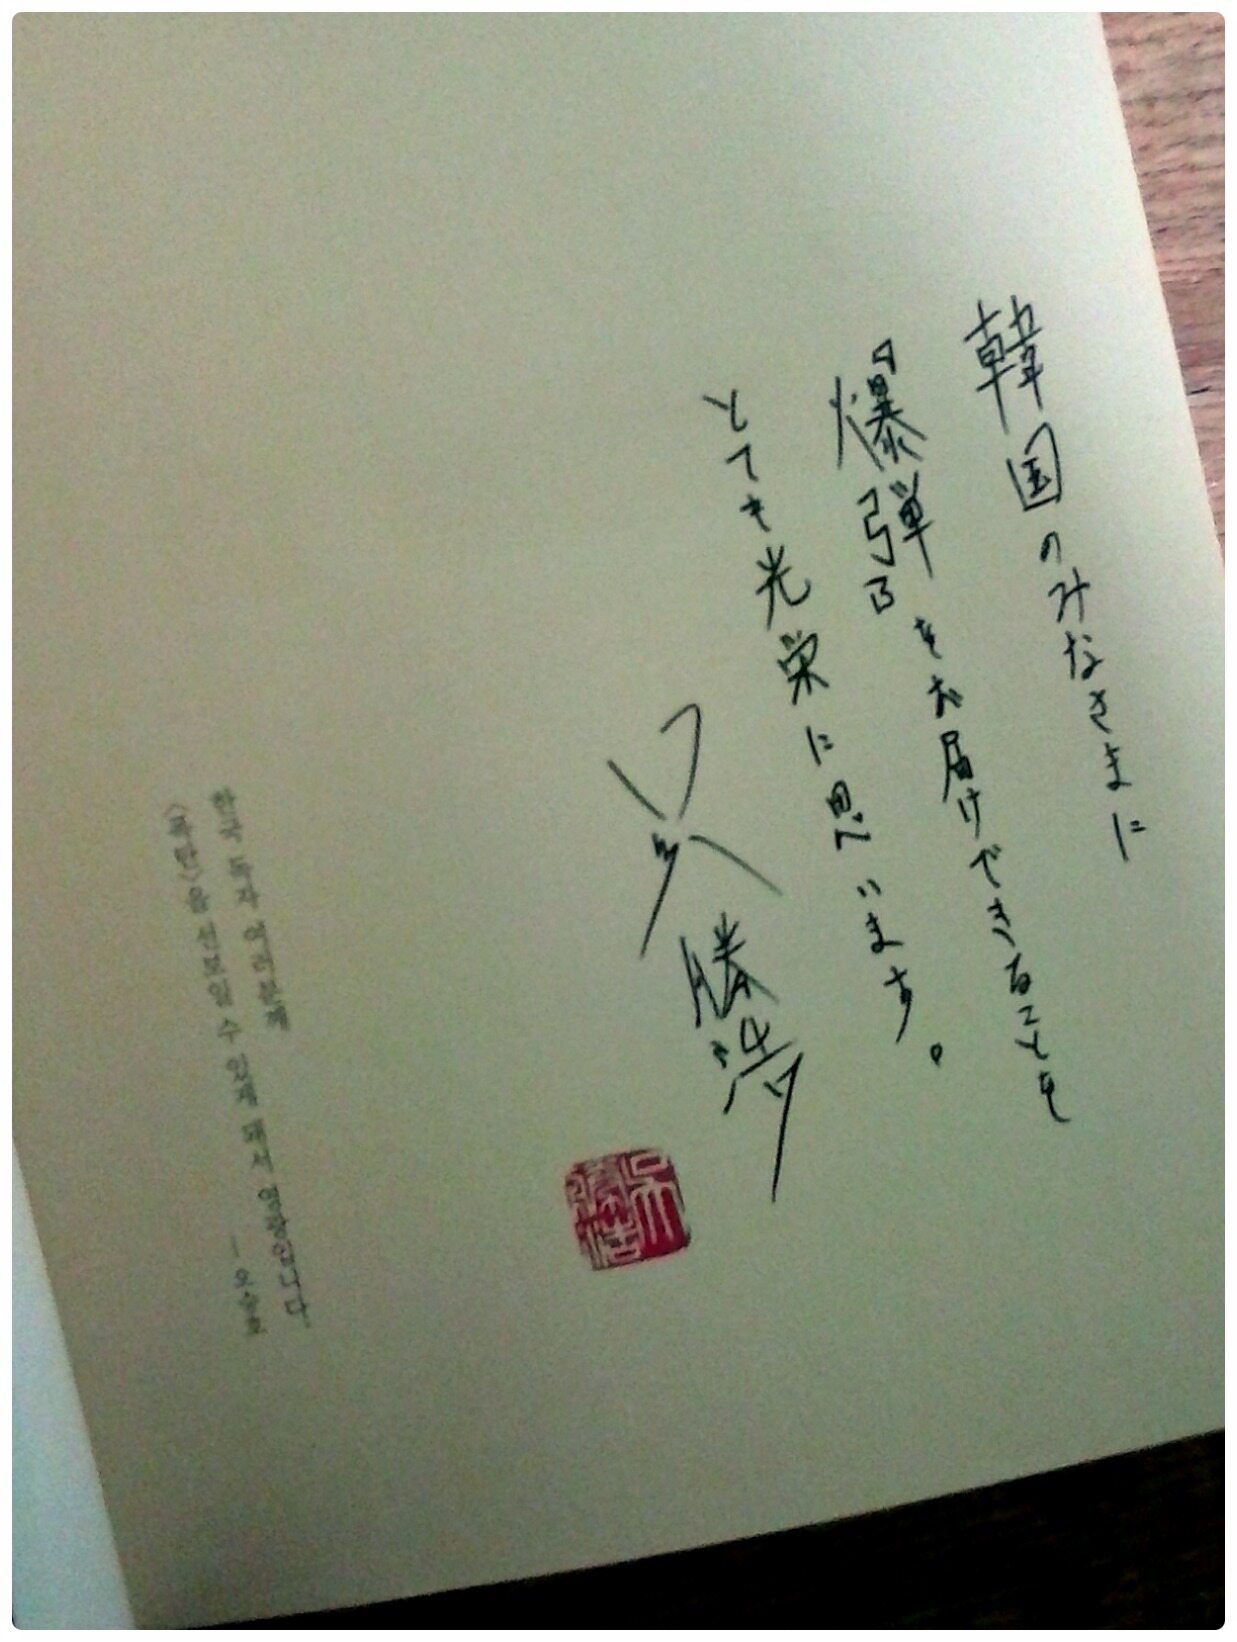 韓国のみなさまに
『爆弾』をお届けできることを
とても光栄に思います。
呉勝浩
한국 독자 여러분께
<폭탄>을 선보일 수 있게 돼서 영광입니다
- 오승호